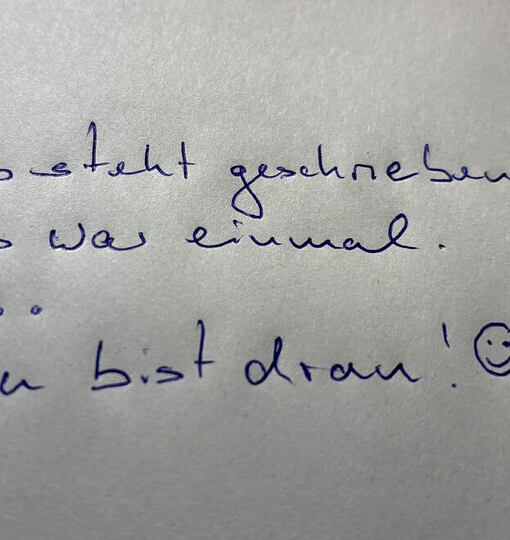 steht geschrieben
war einmal.
bist dran! ☺